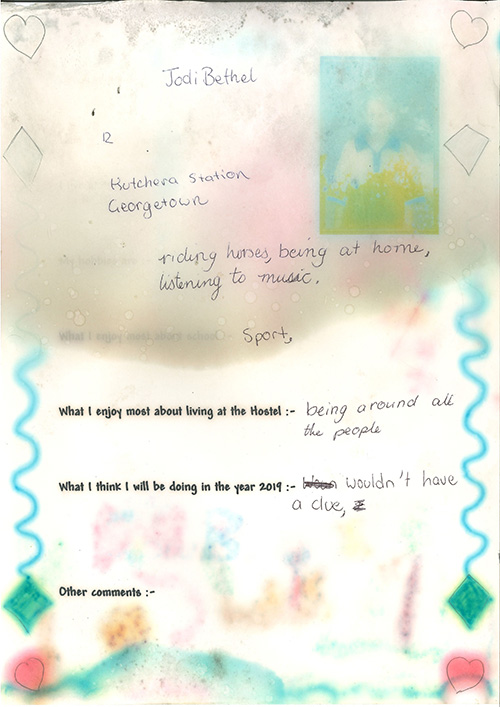 Jodi Bethel
12
Kutchera Station
Georgetown
riding horses, being at home,
listening to music.
What I enjoy most about school :- Sport,
What I enjoy most about living at the Hostel :- being around all
the people
What I think I will be doing in the year 2019 :- wouldn't have
a clue,
Other comments :-